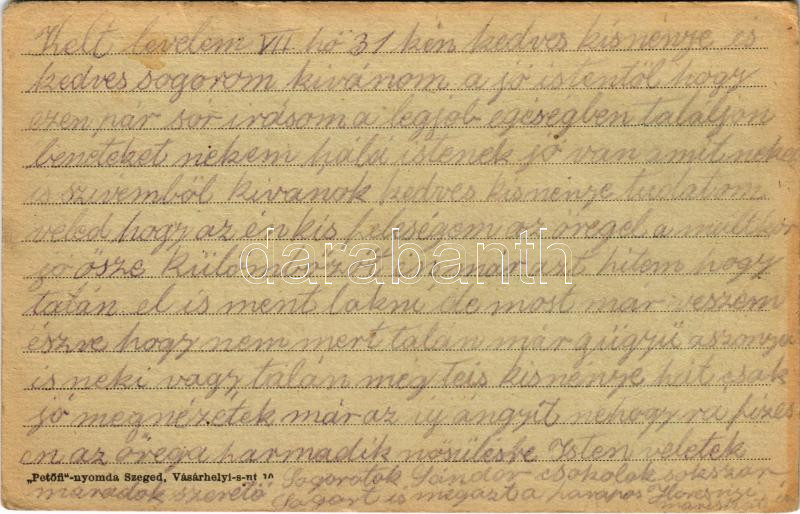 Kelt levelem VII hó 31 kén kedves kisnénye is
kedves sogorom kivánom a jó istentöl hogy
ezen pár sor irásom a legjob egéségben találjon
beneteket nekem hálá istenek jó van amit neked
is szivemböl kivanok kedves kisnénye tudatom
veled hogy az én kis feleségem az öregel a multkor
jó ösze külömbözöt is már azt hitem hogy
talán el is ment lakni de most már veszem
észre hogy nem mert talán már gügyü aszonya
is neki vagy talán még teis kisnénye hát csak
jó megnézétek már az uj ángyit nehogy rá fizes
en az örega harmadik nösülésbe Isten veletek
„Petőfi“-nyomda Szeged, Vásárhelyi-s-ut 10
Sogorotok Sándor csokolok sokszor
maradok szeretö
Sogort is megazt a harapos
darabanth